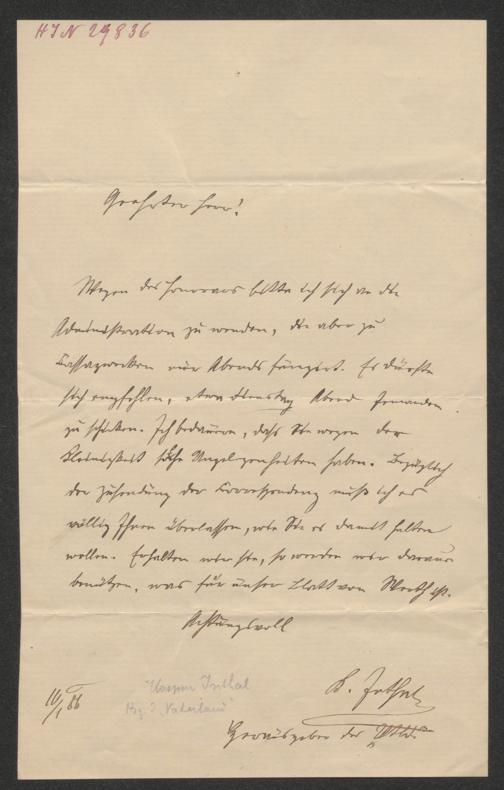 HIN 29836
Geehrter Herr!
Wegen des Honorars bitte ich sich an die
Administration zu wenden, die aber zu
Cassazwecken nur Abends fungirt. Es dürfte
sich empfehlen, etwa Dienstag Abend Jemanden
zu schicken. Ich bedauere, daß Sie wegen der
Kleinigkeit solche Ungelegenheiten haben. Bezüglich
der Zusendung der Correspondenz muß ich es
völlig Ihnen überlassen, wie Sie es damit halten
wollen. Erhalten wir sie, so werden wir daraus
benützen, was für unser Blatt von Werth ist.
Achtungsvoll
Inthal
10/1 86
Herausgeber des
"Vaterland"